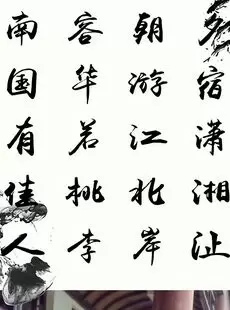 南国有佳人
容华若桃李
朝游江北岸
夕宿潇湘沚